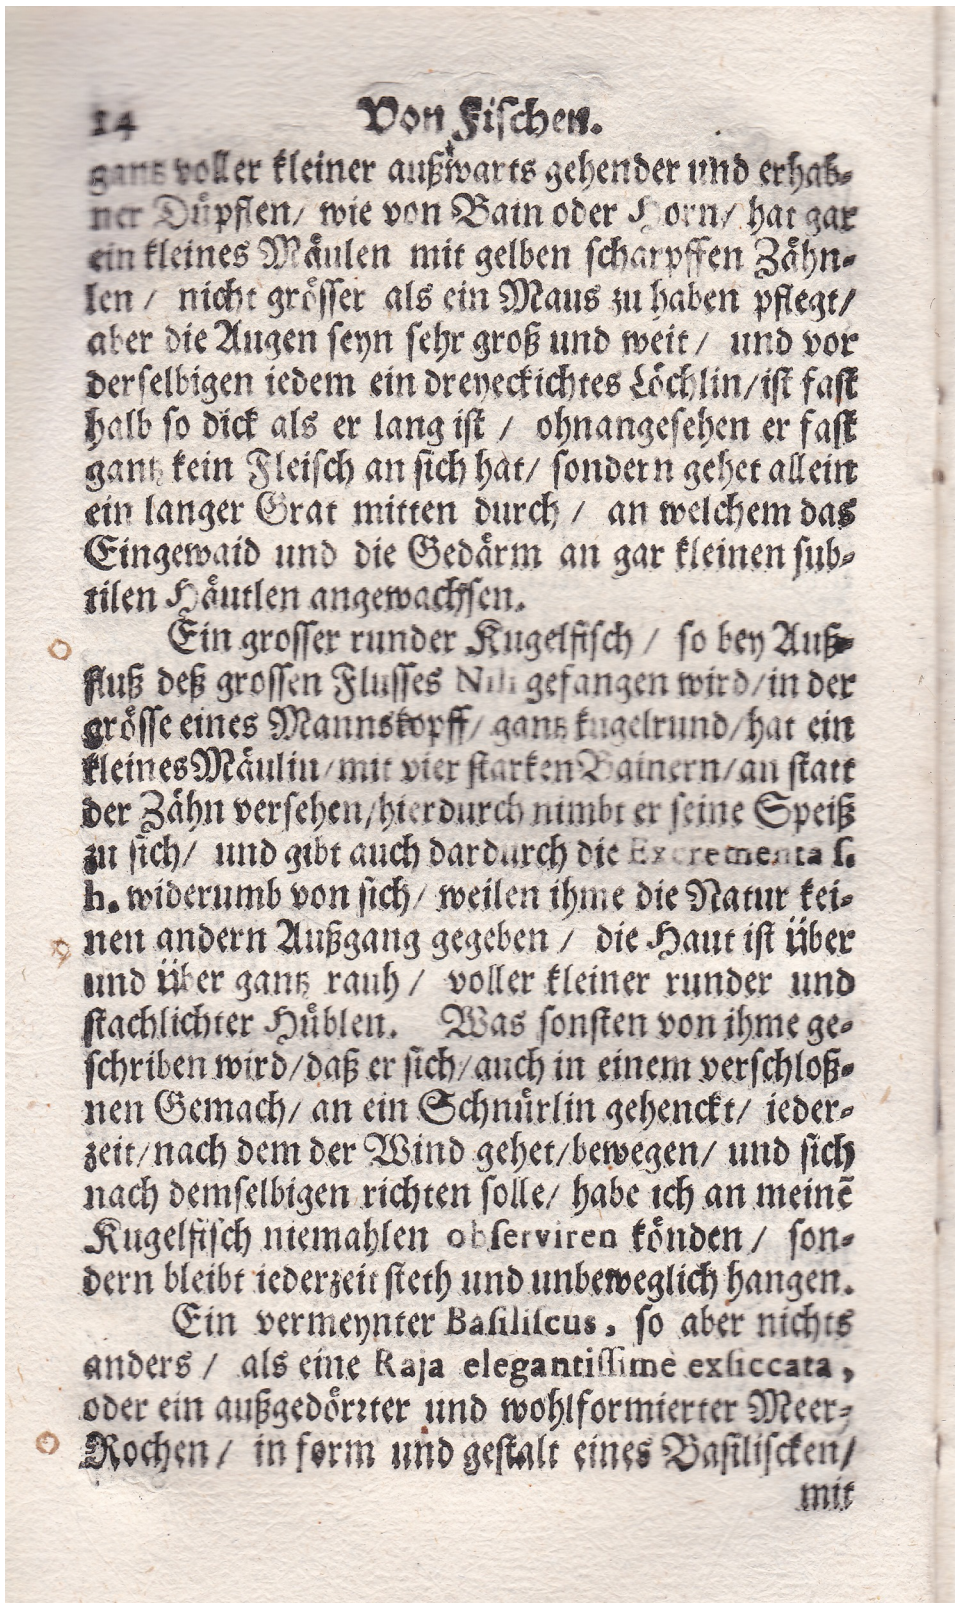 14 Von Fischen.
gantz voller kleiner außwarts gehender und erhab-
ner Düpflen/ wie von Bain oder Horn/ hat gar
ein kleines Mäulen mit gelben scharpffen Zähn-
len / nicht grösser als ein Maus zu haben pflegt/
aber die Augen seyn sehr groß und weit/ und vor
derselbigen iedem ein dreyeckichtes Löchlin/ist fast
halb so dick als er lang ist / ohnangesehen er fast
gantz kein Fleisch an sich hat/ sondern gehet allein
ein langer Grat mitten durch / an welchem das
Eingewaid und die Gedärm an gar kleinen sub-
tilen Häutlen angewachsen.
Ein grosser runder Kugelfisch / so bey Auß-
fluß deß grossen Flusses Nili gefangen wird/in der
grösse eines Mannskopff/ gantz kugelrund/hat ein
kleines Mäulin/mit vier starken Bainern/an statt
der Zähn versehen/hierdurch nimbt er seine Speiß
zu sich/ und gibt auch dardurch die Excrementa s.
h. widerumb von sich/ weilen ihme die Natur kei-
nen andern Außgang gegeben / die Haut ist über
und über gantz rauh / voller kleiner runder und
stachlichter Hüblen. Was sonsten von ihme ge-
schriben wird/daß er sich/auch in einem verschloß-
nen Gemach/ an ein Schnürlin gehenckt/ ieder-
zeit/nach dem der Wind gehet/bewegen/ und sich
nach demselbigen richten solle/ habe ich an meinē
Kugelfisch niemahlen observiren könden/ son-
dern bleibt iederzeit steth und unbeweglich hangen.
Ein vermeynter Basiliscus, so aber nichts
anders / als eine Raja elegantissimè exsiccata,
oder ein außgedörrter und wohlformierter Meer-
Rochen / in form und gestalt eines Basiliscken/
mit